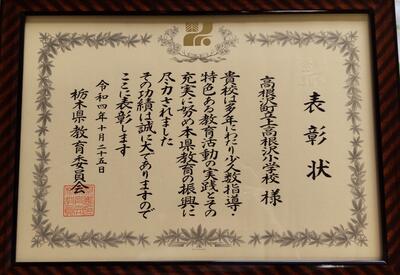 表彰状
高根沢町立上高根沢小学校 様
貴校は多年にわたり少人数指導・
特色ある教育活動の実践とその
充実に努め本県教育の振興に
尽力されました
その功績は誠に大でありますので
ここに表彰します
令和四年十月二十五日
栃木県教育委員会